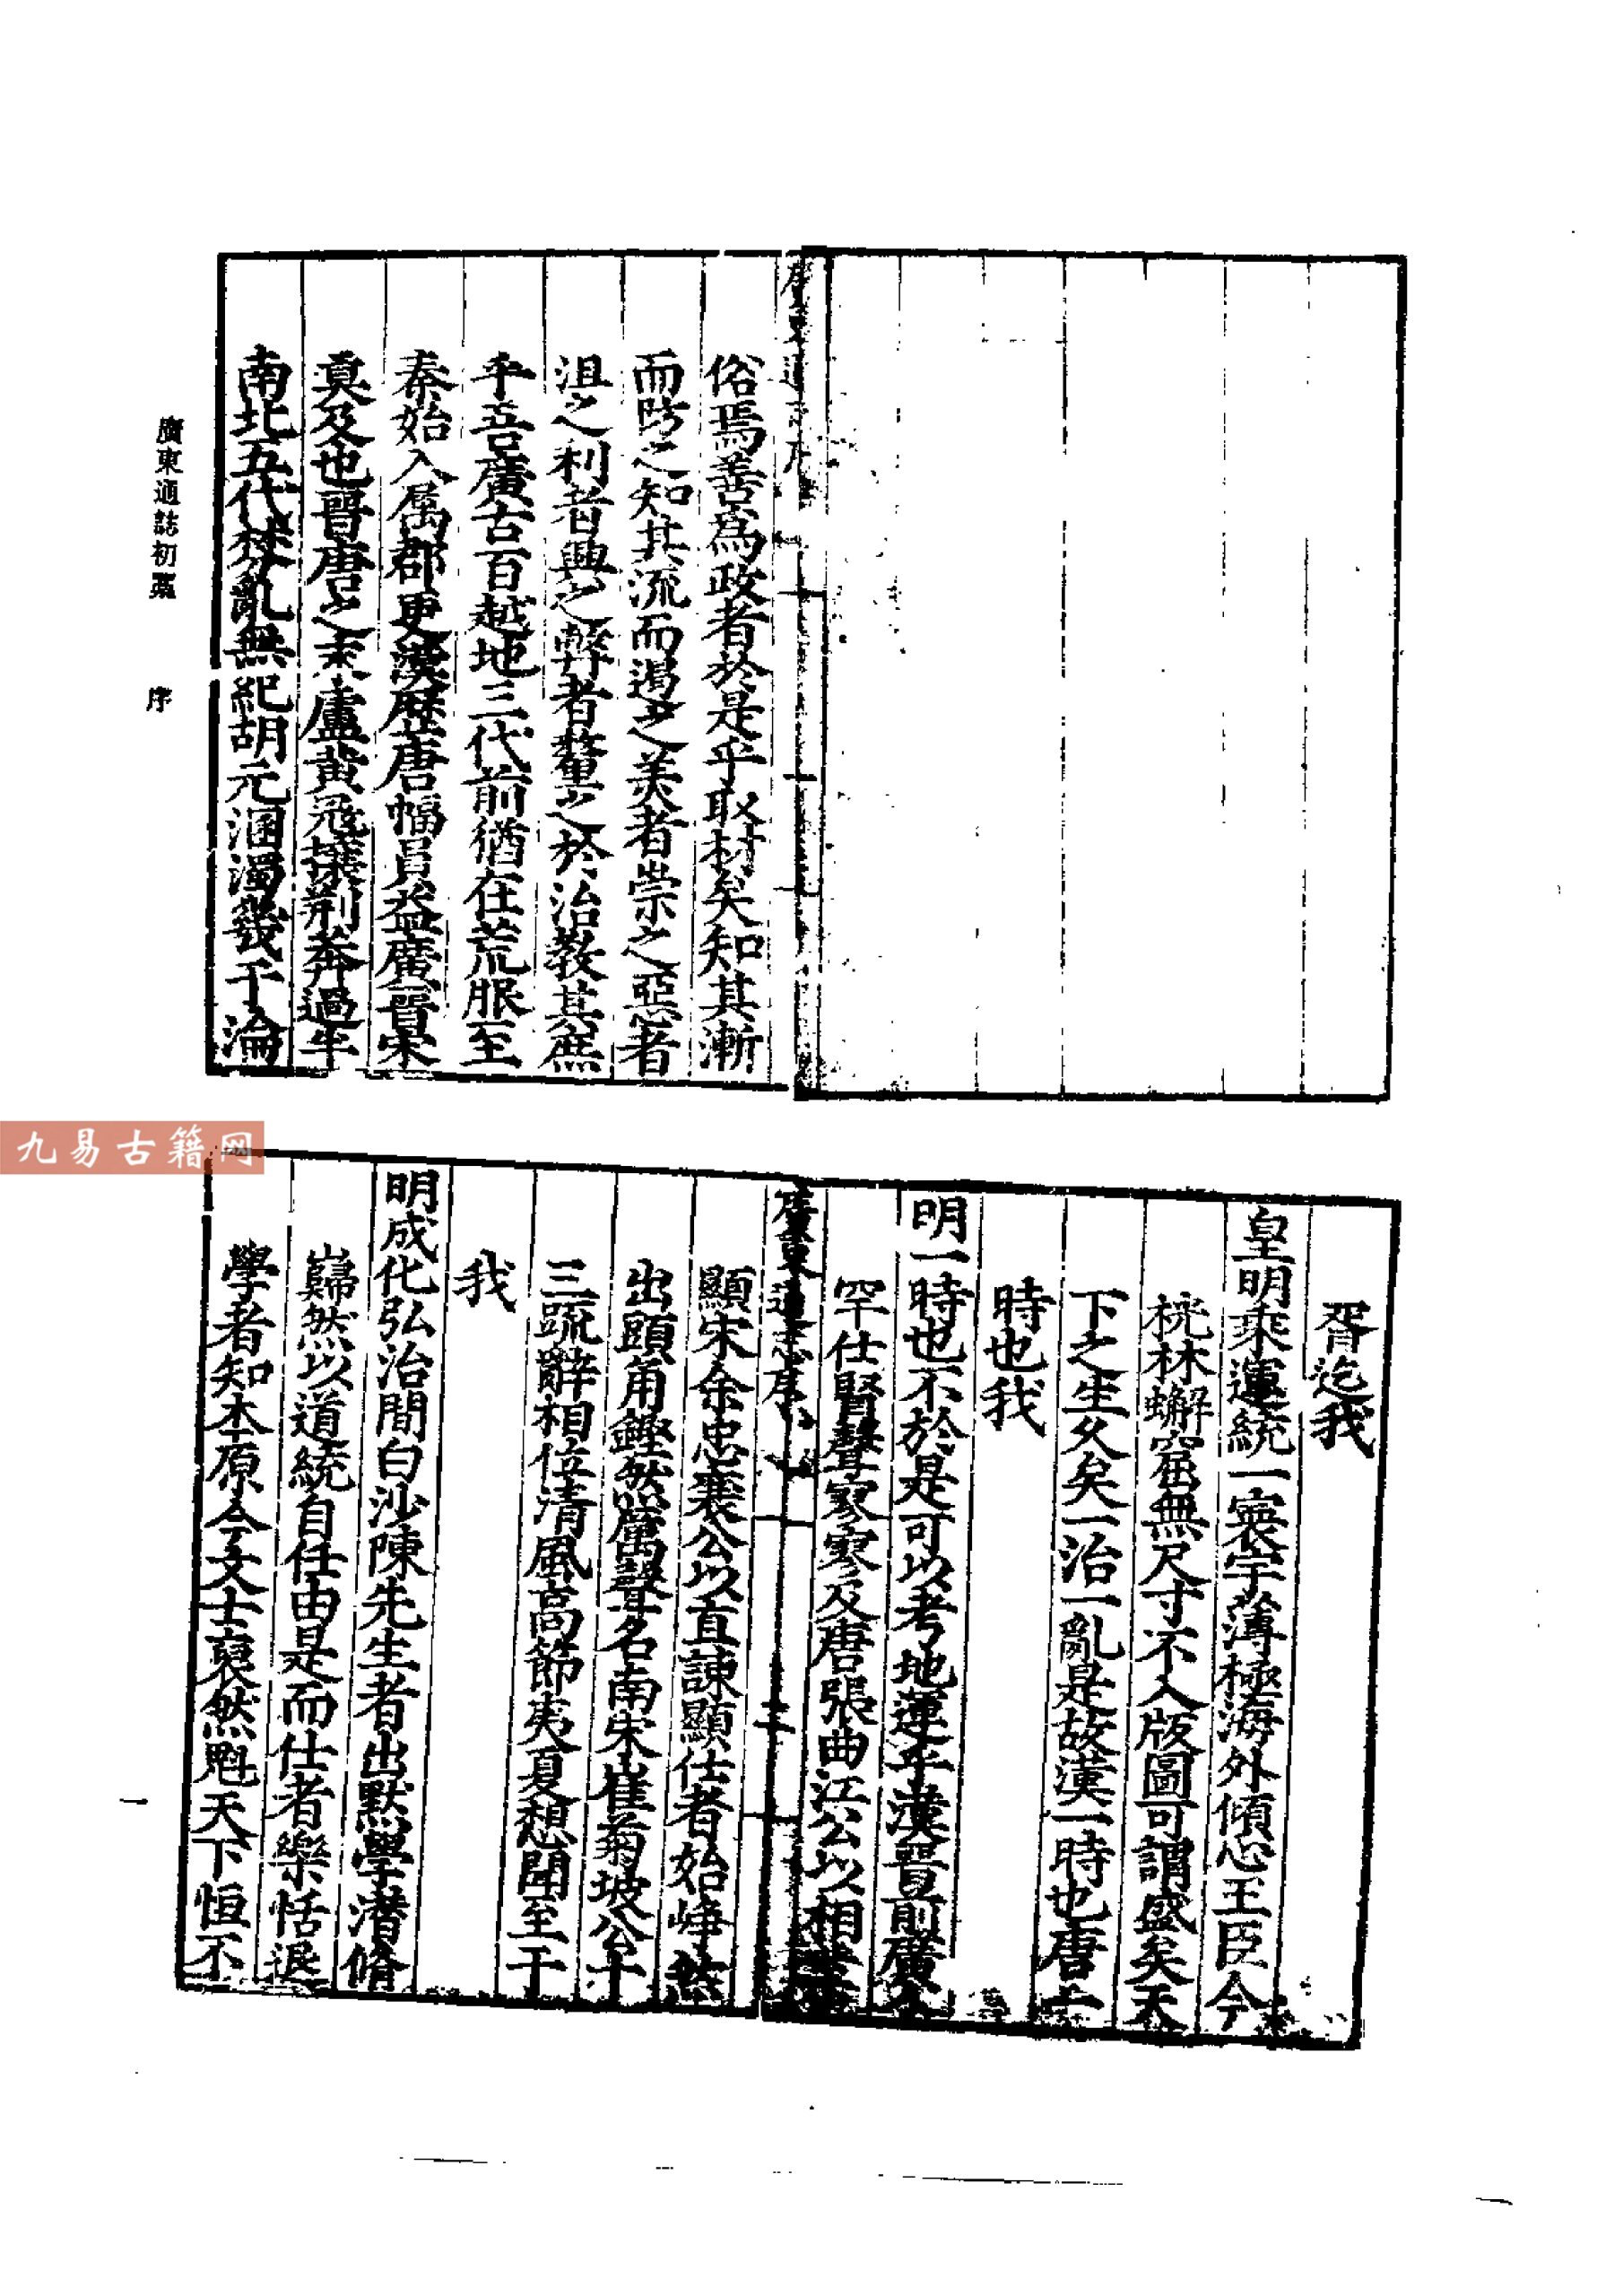 俗焉善為政者於是乎取材矣知其漸
而防之知其流而遏之美者崇之惡者
沮之利者興之弊者釐之於治教其庶
乎吾廣古百越地三代前猶在荒服至
秦始入屬郡更漢歷唐幅員益廣晉宋
莫及也晉唐之末盧黃冦攘荆莽過半
南北五代棼亂無紀胡元溷濁幾于淪
廣東通誌初藁 序
胥迄我
皇明乘運統一寰宇薄極海外傾心王臣今
桄林蠏窟無尺寸不入版圖可謂盛矣天
下之生久矣一治一亂是故漢一時也唐一
時也我
明一時也不於是可以考地運乎漢晉前廣人
罕仕賢聲寥寥及唐張曲江公以相業
廣東通志序
顯宋余忠襄公以直諫顯仕者始崢然
出頭角鏗然厲聲名南宋崔菊坡公十
三疏辭相位清風高節夷夏想聞至于
我
明成化弘治間白沙陳先生者出默學潛脩
巋然以道統自任由是而仕者樂恬退
學者知本原今文士裒然魁天下恒不
一
九易古籍网